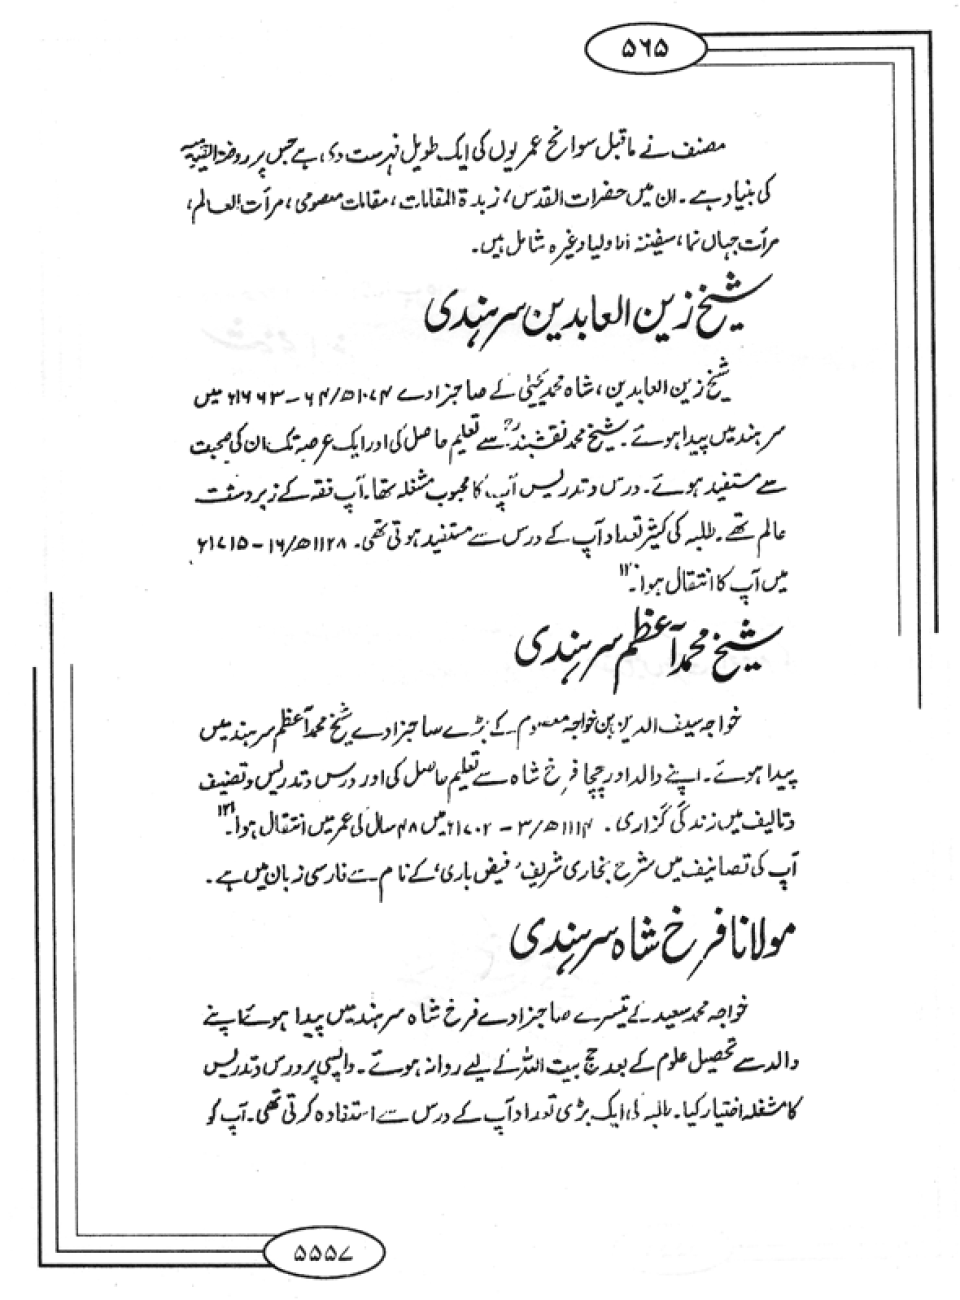 ۵۶۵
مصنف نے ماقبل سوانح عمریوں کی ایک طویل فہرست دی ہے جس پر روضۃ القیومیہ
کی بنیاد ہے۔ ان میں حضرات القدس، زبدۃ المقامات، مقامات معصومی، مرأت العالم،
مرأت جہاں نما، سفینۃ الاولیا وغیرہ شامل ہیں۔
شیخ زین العابدین سرہندی
شیخ زین العابدین، شاہ محمد یحییٰ کے صاحبزادے ۱۰۷۴ھ/۶۴-۱۶۶۳ء میں
سرہند میں پیدا ہوئے۔ شیخ محمد نقشبندؒ سے تعلیم حاصل کی اور ایک عرصہ تک ان کی صحبت
سے مستفید ہوئے۔ درس و تدریس آپ کا محبوب مشغلہ تھا۔ آپ فقہ کے زبردست
عالم تھے۔ طلبہ کی کثیر تعداد آپ کے درس سے مستفید ہوتی تھی۔ ۱۱۲۸ھ/۱۶-۱۷۱۵ء
میں آپ کا انتقال ہوا۔
شیخ محمد اعظم سرہندی
خواجہ سیف الدین بن خواجہ معصوم کے بڑے صاحبزادے شیخ محمد اعظم سرہند میں
پیدا ہوئے۔ اپنے والد اور چچا فرخ شاہ سے تعلیم حاصل کی اور درس و تدریس و تصنیف
و تالیف میں زندگی گزاری۔ ۱۱۱۴ھ/۳-۱۷۰۲ء میں ۴۸ سال کی عمر میں انتقال ہوا۔
آپ کی تصانیف میں شرح بخاری شریف 'فیض باری' کے نام سے فارسی زبان میں ہے۔
مولانا فرخ شاہ سرہندی
خواجہ محمد سعید کے تیسرے صاحبزادے فرخ شاہ سرہند میں پیدا ہوئے اپنے
والد سے تحصیل علوم کے بعد حج بیت اللہ کے لیے روانہ ہوئے۔ واپسی پر درس و تدریس
کا مشغلہ اختیار کیا۔ طلبہ کی ایک بڑی تعداد آپ کے درس سے استفادہ کرتی تھی۔ آپ کو
۵۵۵۷